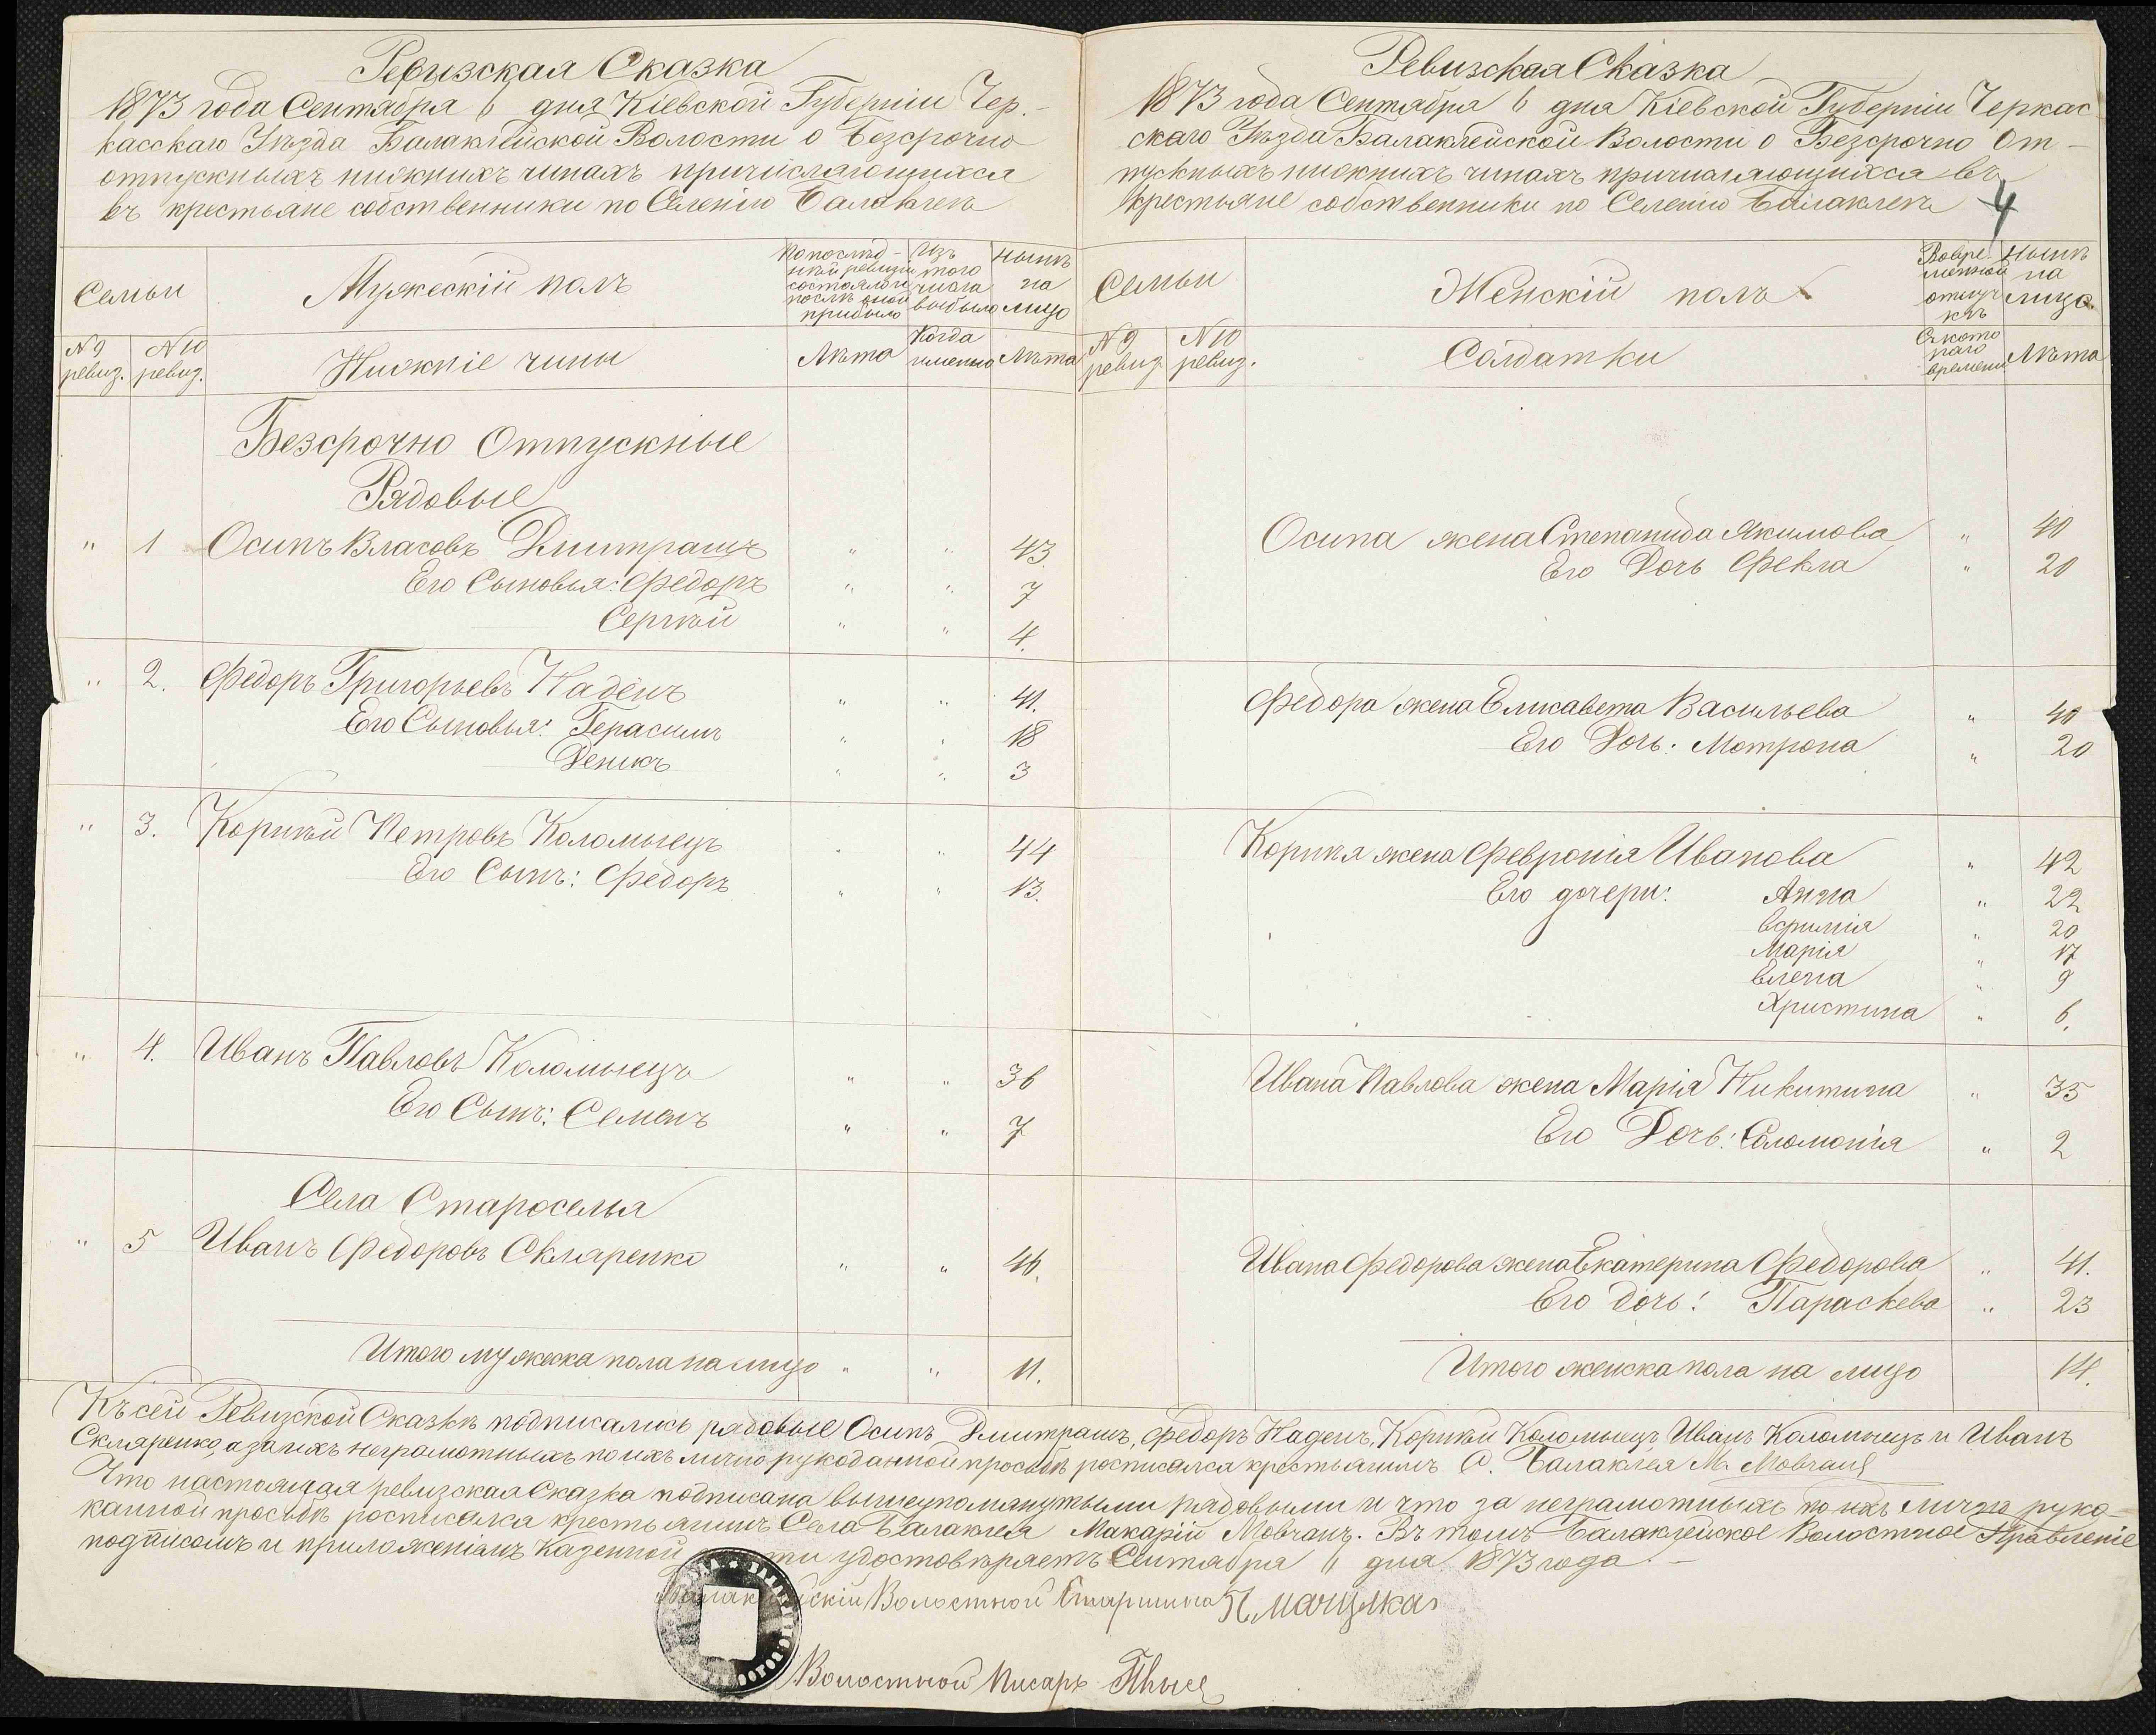 Ревизская Сказка
1873 года Сентября 6 дня Кіевской Губерніи Чер-
касскаго Уѣзда Балаклейской Волости о безсрочно
отпускныхъ нижнихъ чинахъ причисляющихся
въ крестьяне собственники по Селенію Балаклеѣ
Семьи
Мужескій полъ
По послѣд-
ней ревизіи
состояло и
послѣ оной
прибыло
Изъ
того
числа
выбыло
Нынѣ
на
лицо
N 9
ревиз.
N 10
ревиз.
Нижніе чины
Лѣта
Когда
именно
Лѣта
Безсрочно Отпускные
Рядовые
" 1 Осипъ Власовъ Дмитрашъ " " 43.
Его Сыновья: Федоръ " " 7
Сергѣй " " 4.
" 2. Федоръ Григорьевъ Наденъ " " 41.
Его Сыновья: Герасимъ " " 18
Денисъ " " 3
" 3. Корнѣй Петровъ Коломыецъ " " 44
Его Сынъ: Федоръ " " 13.
" 4. Иванъ Павловъ Коломыецъ " " 36
Его Сынъ: Семенъ " " 7
Села Староселья
" 5 Иванъ Федоровъ Скляренко " " 46.
Итого мужеска пола на лицо " " 11.
Ревизская Сказка
1873 года Сентября 6 дня Кіевской Губерніи Черкас
скаго Уѣзда Балаклейской Волости о Безсрочно От-
пускныхъ нижнихъ чинахъ причисляющихся въ
крестьяне собственники по Селенію Балаклеѣ
4
Семьи
Женскій полъ
Во вре-
менной
отлуч
кѣ
Нынѣ
на
лицо.
N 9
ревиз.
N 10
ревиз.
Солдатки
Съ кото
раго
времени
Лѣта
Осипа жена Степанида Якимова " 40
Его Дочь Фекла " 20
Федора жена Елисавета Васильева " 40
Его Дочь: Мотрона " 20
Корнѣя жена Февронія Иванова " 42
Его дочери: Анна " 22
" 20
Марія " 17
Елена " 9
Христина " 6.
Ивана Павлова жена Марія Никитина " 35
Его Дочь: Соломонія " 2
Ивана Федорова жена Екатерина Федорова " 41.
Его дочь: Параскева " 23
Итого женска пола на лицо 14.
Къ сей Ревизской Сказкѣ подписались рядовые Осипъ Дмитрашъ, Федоръ Наденъ, Корнѣй Коломыецъ, Иванъ Коломыецъ и Иванъ
Скляренко, а за ихъ неграмотныхъ по ихъ лично рукоданной просьбѣ росписался крестьянинъ С. Балаклея М. Мовчанъ
Что настоящая ревизская Сказка подписана вышеупомянутыми рядовыми и что за неграмотныхъ по ихъ лично руко-
данной просьбѣ росписался крестьянинъ Села Балаклея Макарій Мовчанъ. Въ томъ Балаклейское Волостное Правленіе
подписомъ и приложеніемъ казенной ти удостовѣряетъ Сентября 11 дня 1873 года. —
Балак йскій Волостной Старшина
Волостной Писарь